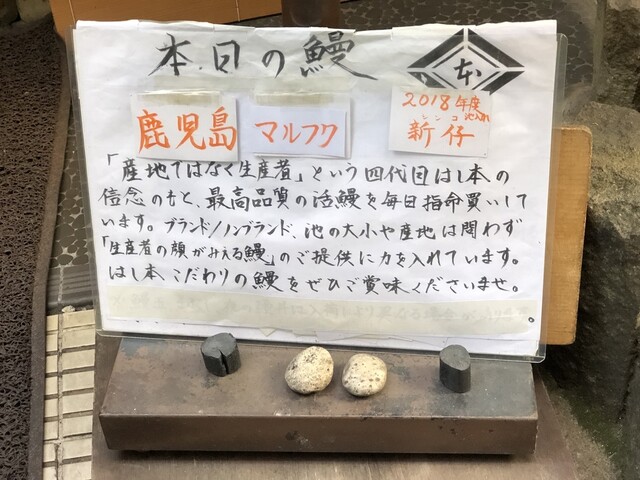 本日の鰻
本
鹿児島
マルフク
2018年度
シンコ 池入れ
新仔
「産地ではなく生産者」という四代目はし本の
信念のもと、最高品質の活鰻を毎日指命買いして
います。ブランド/ノンブランド、池の大小や産地は問わず
「生産者の顔がみえる鰻」のご提供に力を入れています。
はし本こだわりの鰻をぜひご賞味くださいませ。